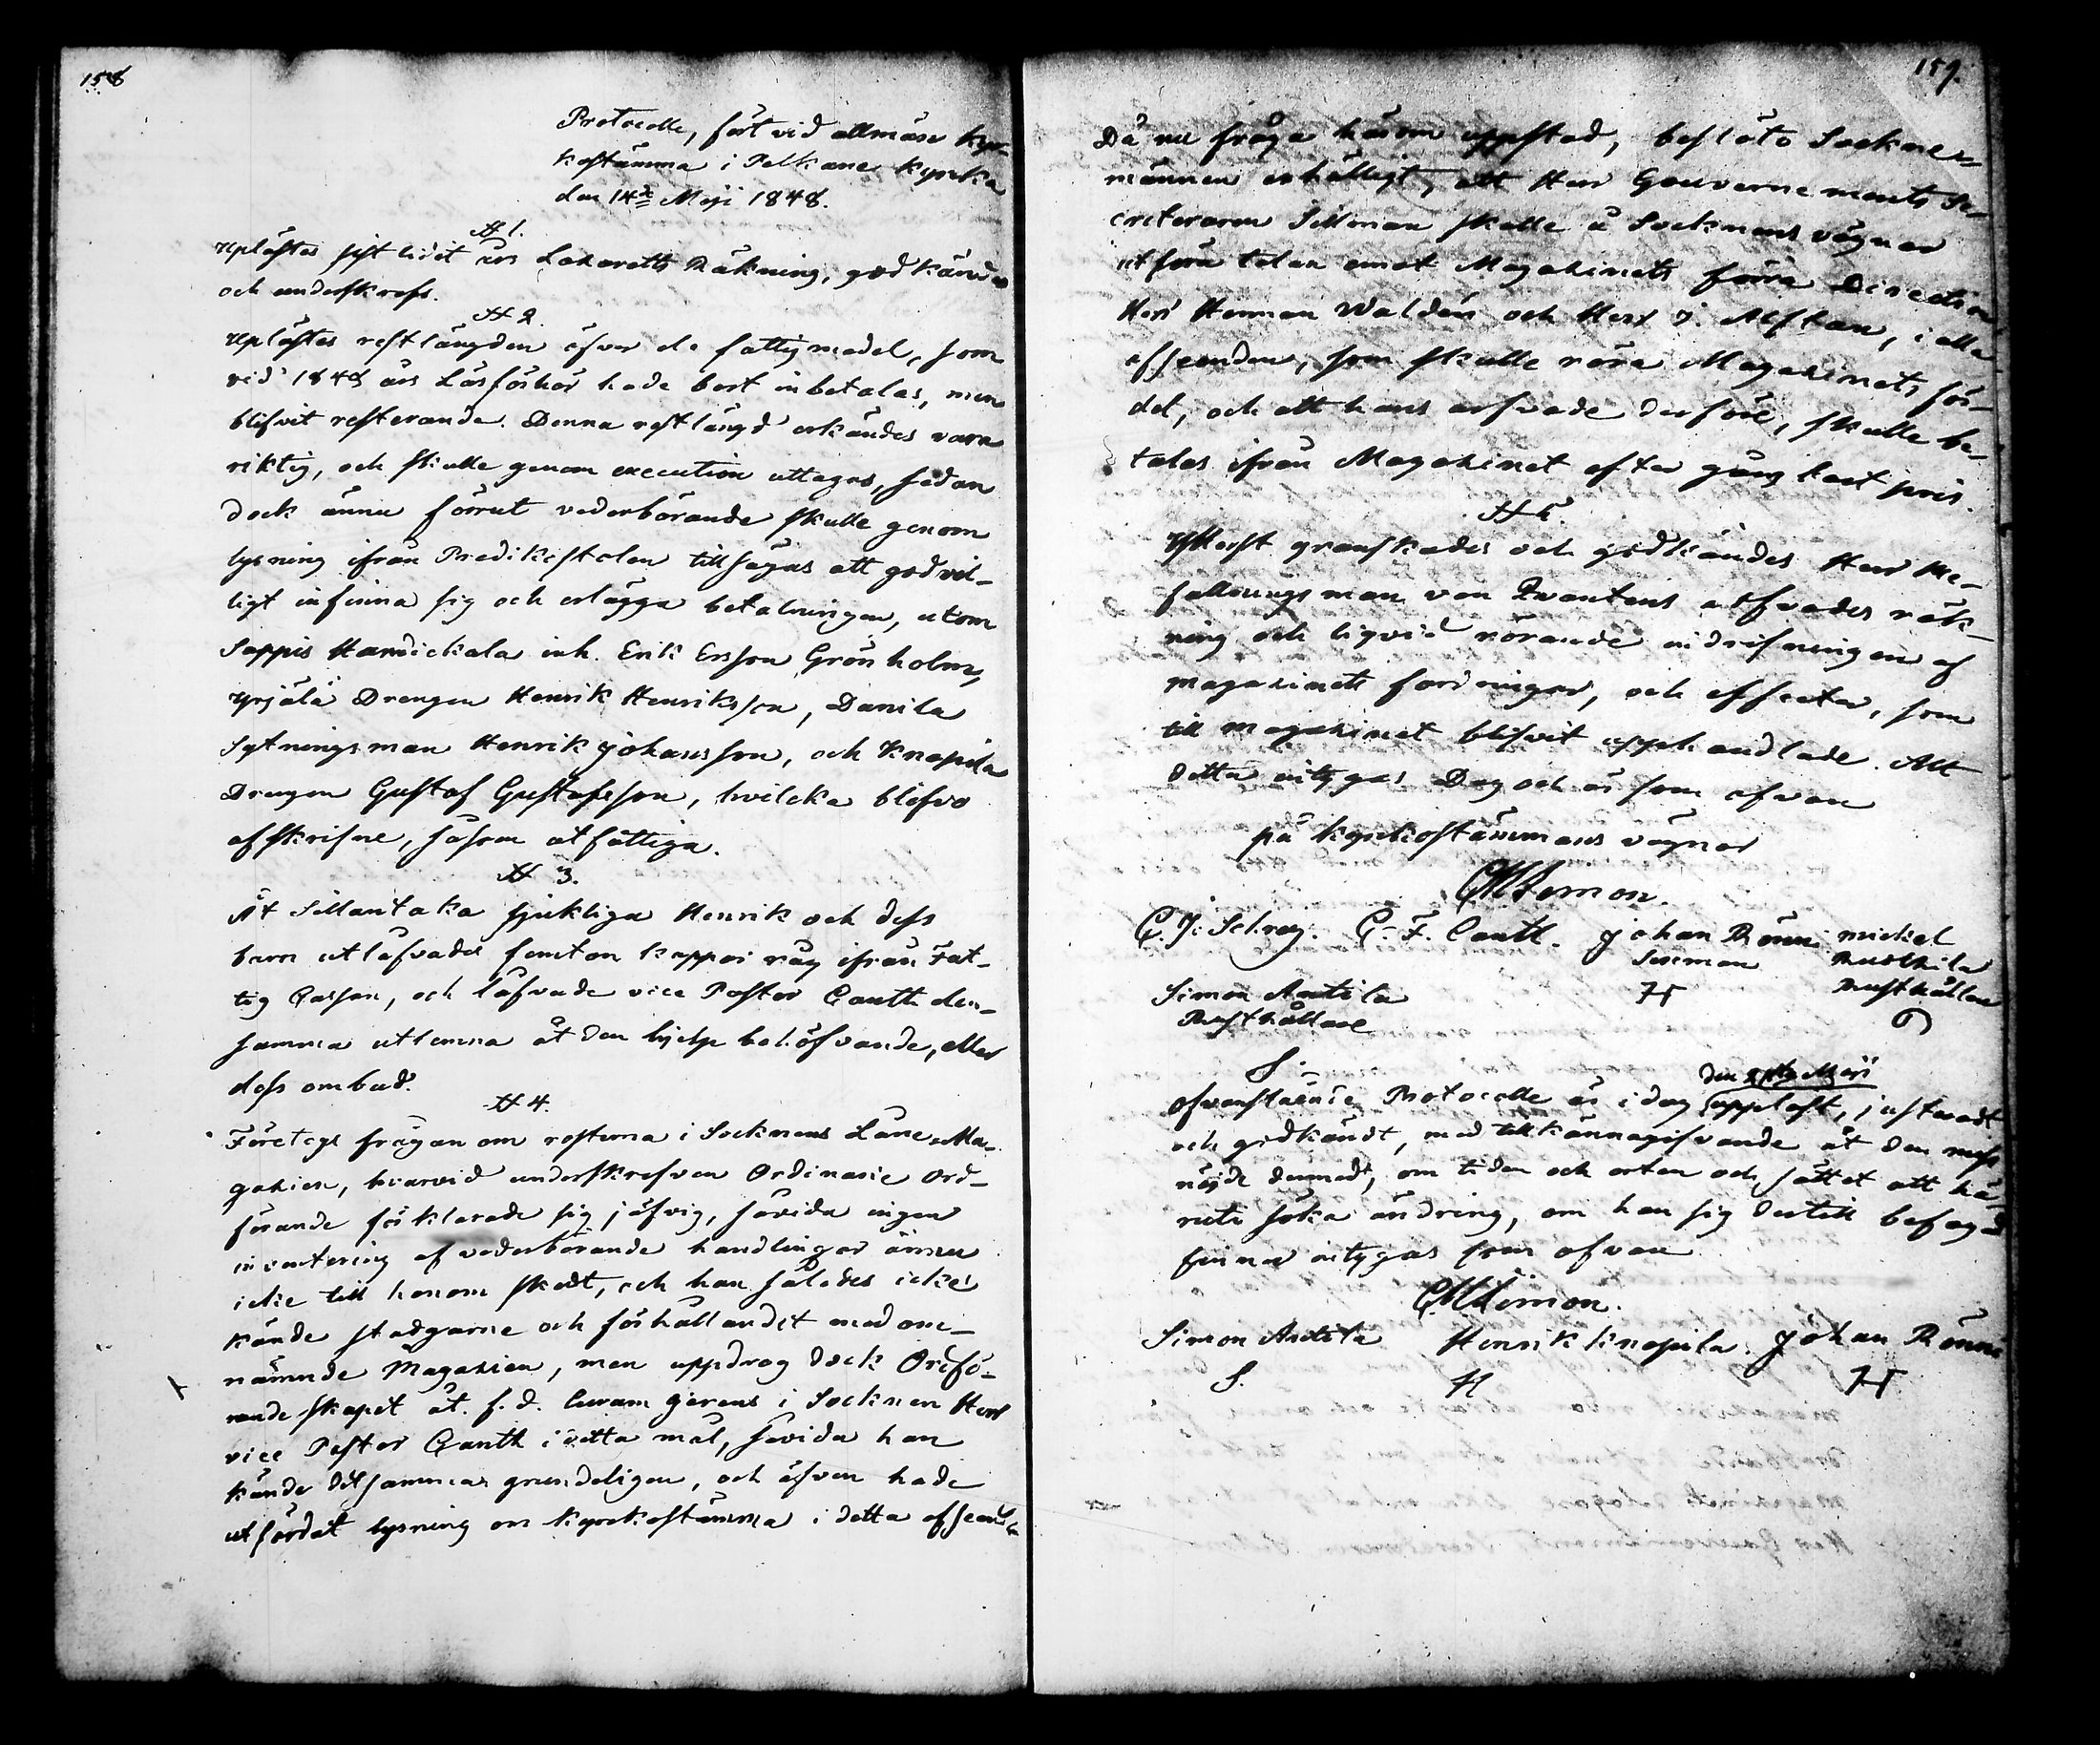 158
Protocoll, fört vid allmän kyr-
kostämma i Pelkäne kyrka
den 14de Maji 1848.
§ 1.
Uplästes sist lidit års Lazaretts Räkning, godkändes
och underskrefs.
§ 2.
Uplästes restlängden öfver de fattigmedel, som
vid 1848 års Läsförhör hade bort inbetalas, men
blifvit resterande. Denna restlängd erkändes vara
riktig, och skulle genom execution uttagas, sedan
dock ännu förrut vederbörande skulle genom
lysning ifrån Predikestolen tillsägas att godvil-
ligt infinna sig och erlägga betalningen, utom
Sappis Handickala inh. Erik Ersson Grönholm,
Yrjälä Drengen Henrik Henriksson, Danila
Sytningsman Henrik Johansson, och Knapila
Drengen Gustaf Gustafsson, hvilcka blefvo
afskrifne, såsom utfattiga.
§ 3.
Åt Sillantaka sjukliga Henrik och dess
barn utlofvades femton kappar råg ifrån Fat-
tig Cassan, och låfvade vice Pastor Canth den-
samma utlemna åt den hjelp behöfvande, eller
dess ombud.
§ 4.
Företogs frågan om resterna i Socknens Låne Ma-
gazien, hvarvid underskrefven Ordinarie Ord-
förande förklarade sig jäfvig, såvida ingen
inventering af vederbörande handlingar ännu
icke till honom skedt, och han således icke
kände stadgarne och förhållandet med om-
nämnde Magazien, men uppdrog dock Ordfö-
randeskapet åt f. d. Curam gerens i Socknen Herr
vice Pastor Canth i detta mål, såvida han
kände detsamma grundeligen, och äfven hade
utfärdat lysning om kyrkostämma i detta afseende
159.
Då nu fråga härom uppstod, beslöto Sockne-
männen enhälligt, att Herr Gouvernements Se-
creteraren Sillman skulle å Socknens vägnar
utföra talan emot Magazinets förra Direction
Herr Herman Waldén och Herr J. Alftan, i alla
afseenden, som skulle röra Magazinets för-
del, och att hans arfvode derföre, skulle be-
talas ifrån Magazinet efter gångbart pris.
§ 5.
Ytterst granskades och godkändes Herr Be-
fallningsman von Qvantens arfvodes räk-
ning och liqvid rörande indrifningen af
magazinets fordringar, och effecter, som
till magazinet blifvit upphandlade. Allt
detta intygas Dag och år som ofvan
på kyrkostämmans vägnar
C. J. Schroy. C. F. Canth. Johan Rönni mickel
Sexman Ruokkila
Simon Antila H Rusthållare
Rusthållare
S.
den 21sta Maji
Ofvanstående Protocoll är i dag uppläst, justeradt
och godkändt, med tillkännagifvande åt den miss-
nöjde dermed, om tiden och orten och sättet att hä-
ruti söka ändring, om han sig dertill befogad
finner intygas som ofvan
Simon Antila Henrik Knapila. Johan Rönni
S. H H